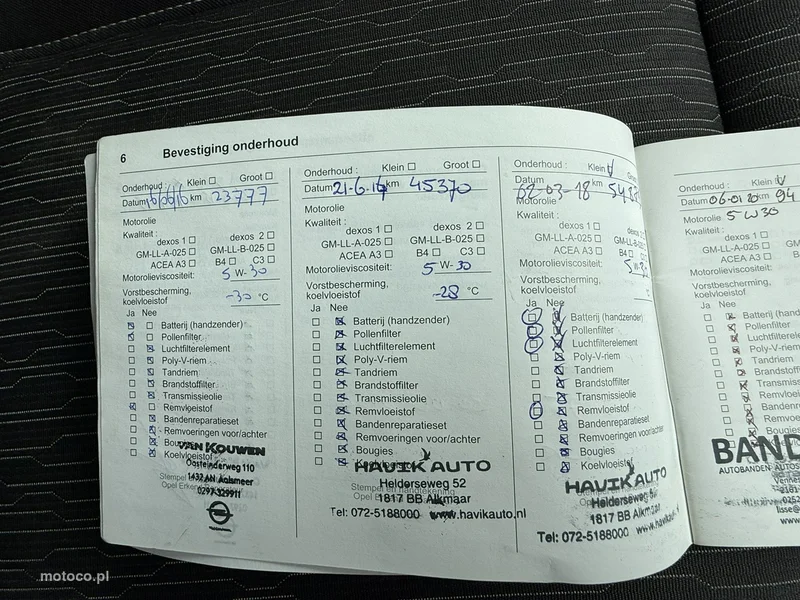 6 Bevestiging onderhoud
Onderhoud : Klein Groot
Datum 16/06/16 km 23777
Motorolie
Kwaliteit :
dexos 1 dexos 2
GM-LL-A-025 GM-LL-B-025
ACEA A3 B4 C3
Motorolieviscositeit: 5 W- 30
Vorstbescherming,
koelvloeistof -30 °C
Ja Nee
Batterij (handzender)
Pollenfilter
Luchtfilterelement
Poly-V-riem
Tandriem
Brandstoffilter
Transmissieolie
Remvloeistof
Bandenreparatieset
Remvoeringen voor/achter
Bougies
Koelvloeistof
VAN KOUWEN
Oosteinderweg 110
1432 AN Aalsmeer
0297-329911
Onderhoud : Klein Groot
Datum 21-6.17 km 45370
Motorolie
Kwaliteit :
dexos 1 dexos 2
GM-LL-A-025 GM-LL-B-025
ACEA A3 B4 C3
Motorolieviscositeit: 5 W- 30
Vorstbescherming,
koelvloeistof -28 °C
Ja Nee
Batterij (handzender)
Pollenfilter
Luchtfilterelement
Poly-V-riem
Tandriem
Brandstoffilter
Transmissieolie
Remvloeistof
Bandenreparatieset
Remvoeringen voor/achter
Bougies
HAVIK AUTO
Stempel en handtekening
Helderseweg 52
1817 BB Alkmaar
Tel: 072-5188000 www.havikauto.nl
Onderhoud : Klein Groot
Datum 02-03-18 km
Motorolie
Kwaliteit :
dexos 1 dexos
GM-LL-A-025 GM-LL-B-025
ACEA A3 B4
Motorolieviscositeit:
Vorstbescherming,
koelvloeistof
Ja Nee
Batterij (handzender)
Pollenfilter
Luchtfilterelement
Poly-V-riem
Tandriem
Brandstoffilter
Transmissieolie
Remvloeistof
Bandenreparatieset
Remvoeringen voor/achter
Bougies
Koelvloeistof
HAVIK AUTO
Helderseweg 52
1817 BB Alkmaar
Tel: 072-5188000 www.havikauto.n
Onderhoud : Klein
Datum 06-01 20 km 94
Motorolie 5 W 30
Kwaliteit :
dexos 1
GM-LL-A-025
ACEA A3
Motorolieviscositeit:
Vorstbescherming,
koelvloeistof
Ja Nee
Batterij (han
Pollenfilter
Luchtfilterel
Poly-V-rie
Tandriem
Brandstof
Transmiss
Remvloei
Banden
Remvo
Bougies
BAND
AUTOBANDEN AUTOS
motoco.pl